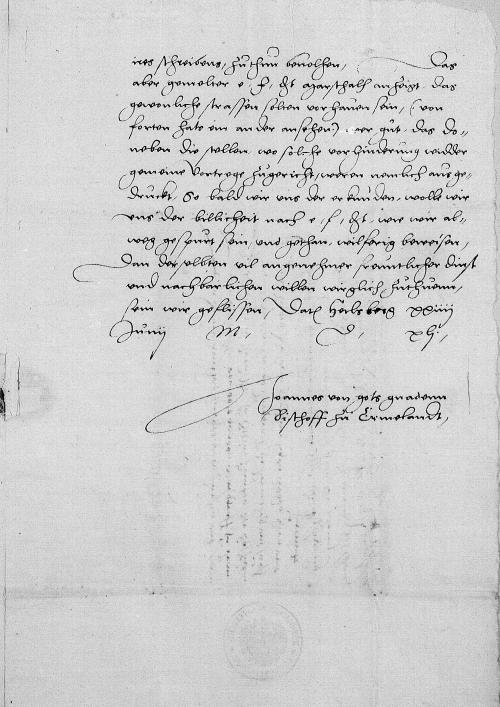 ires schreibens, zuthun bevolhen, Das
aber gemelter e f dt Marschalh anzeigt das
gewonliche strassen solten vorhauen sein, (von
forten hats ein ander ansehen) wer gut, das do-
neben die stellen, wo solche vorhinderung widder
gemeine Vortrege zugericht, weren nemlich ausge-
druckt, So bald wir uns der erkunden, wolle wir
uns der billicheit nach e, f, dt, wie wir al-
weg gespurt sein, und gethan, wilferig beweisen,
Dan derselbten vil angenehmer freuntlicher dinst
und nachbarlichen willen wirglich zuthuenn,
sein wir geflissen, Dat Heilsberg XXIIII
Junij M, D, XL,
Joannes von gots gnadenn
Bischoff zu Ermelandt,